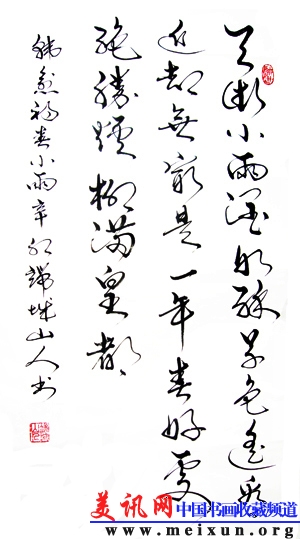 天街小雨潤如酥草色遥看
近却無最是一年春好處
絶勝煙柳滿皇都
韩愈初春小雨辛卯城山人书
美讯网 中国书画收藏频道
www.meixun.org